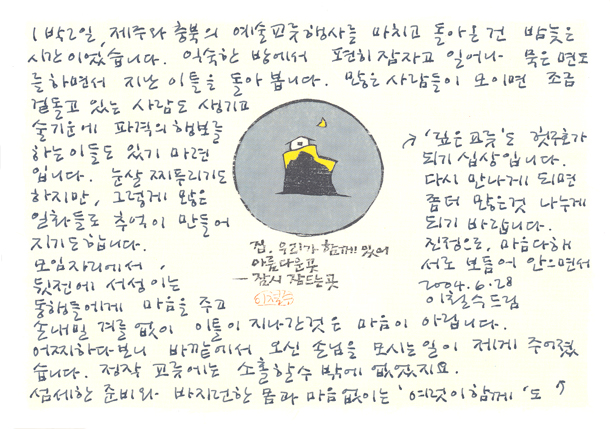 1박2일, 제주와 충북의 예술교류행사를 마치고 돌아온건 밤늦은
시간이었습니다. 익숙한 방에서 편히 잠자고 일어나 묵은 면도
를 하면서 지난 이틀을 돌아 봅니다. 많은 사람들이 모이면 조금
겉돌고 있는 사람도 생기고
술기운에 파격의 행보를
하는이들도 있기 마련
입니다. 눈살 찌푸리기도
하지만, 그렇게 많은
일화들로 추억이 만들어
지기도 합니다.
모임자리에서,
뒷전에 서성이는
동행들에게 마음을 주고
손내밀 겨를 없이 이틀이 지나간것은 마음이 아립니다.
어찌하다보니 바깥에서 오신 손님을 모시는 일이 제게 주어졌
습니다. 정작 교류에는 소홀할수 밖에 없었지요.
섬세한 준비와 바지런한 몸과 마음없이는 '여럿이함께'도 ↗
↗ '깊은 교류'도 헛구호가
되기 십상입니다.
다시 만나게 되면
좀더 많은것 나누게
되기 바랍니다.
진정으로, 마음다해
서로 보듬어 안으면서
2004.6.28
이철수드림
집. 우리가 함께 있어
아름다운곳
— 잠시 잠드는곳
이철수